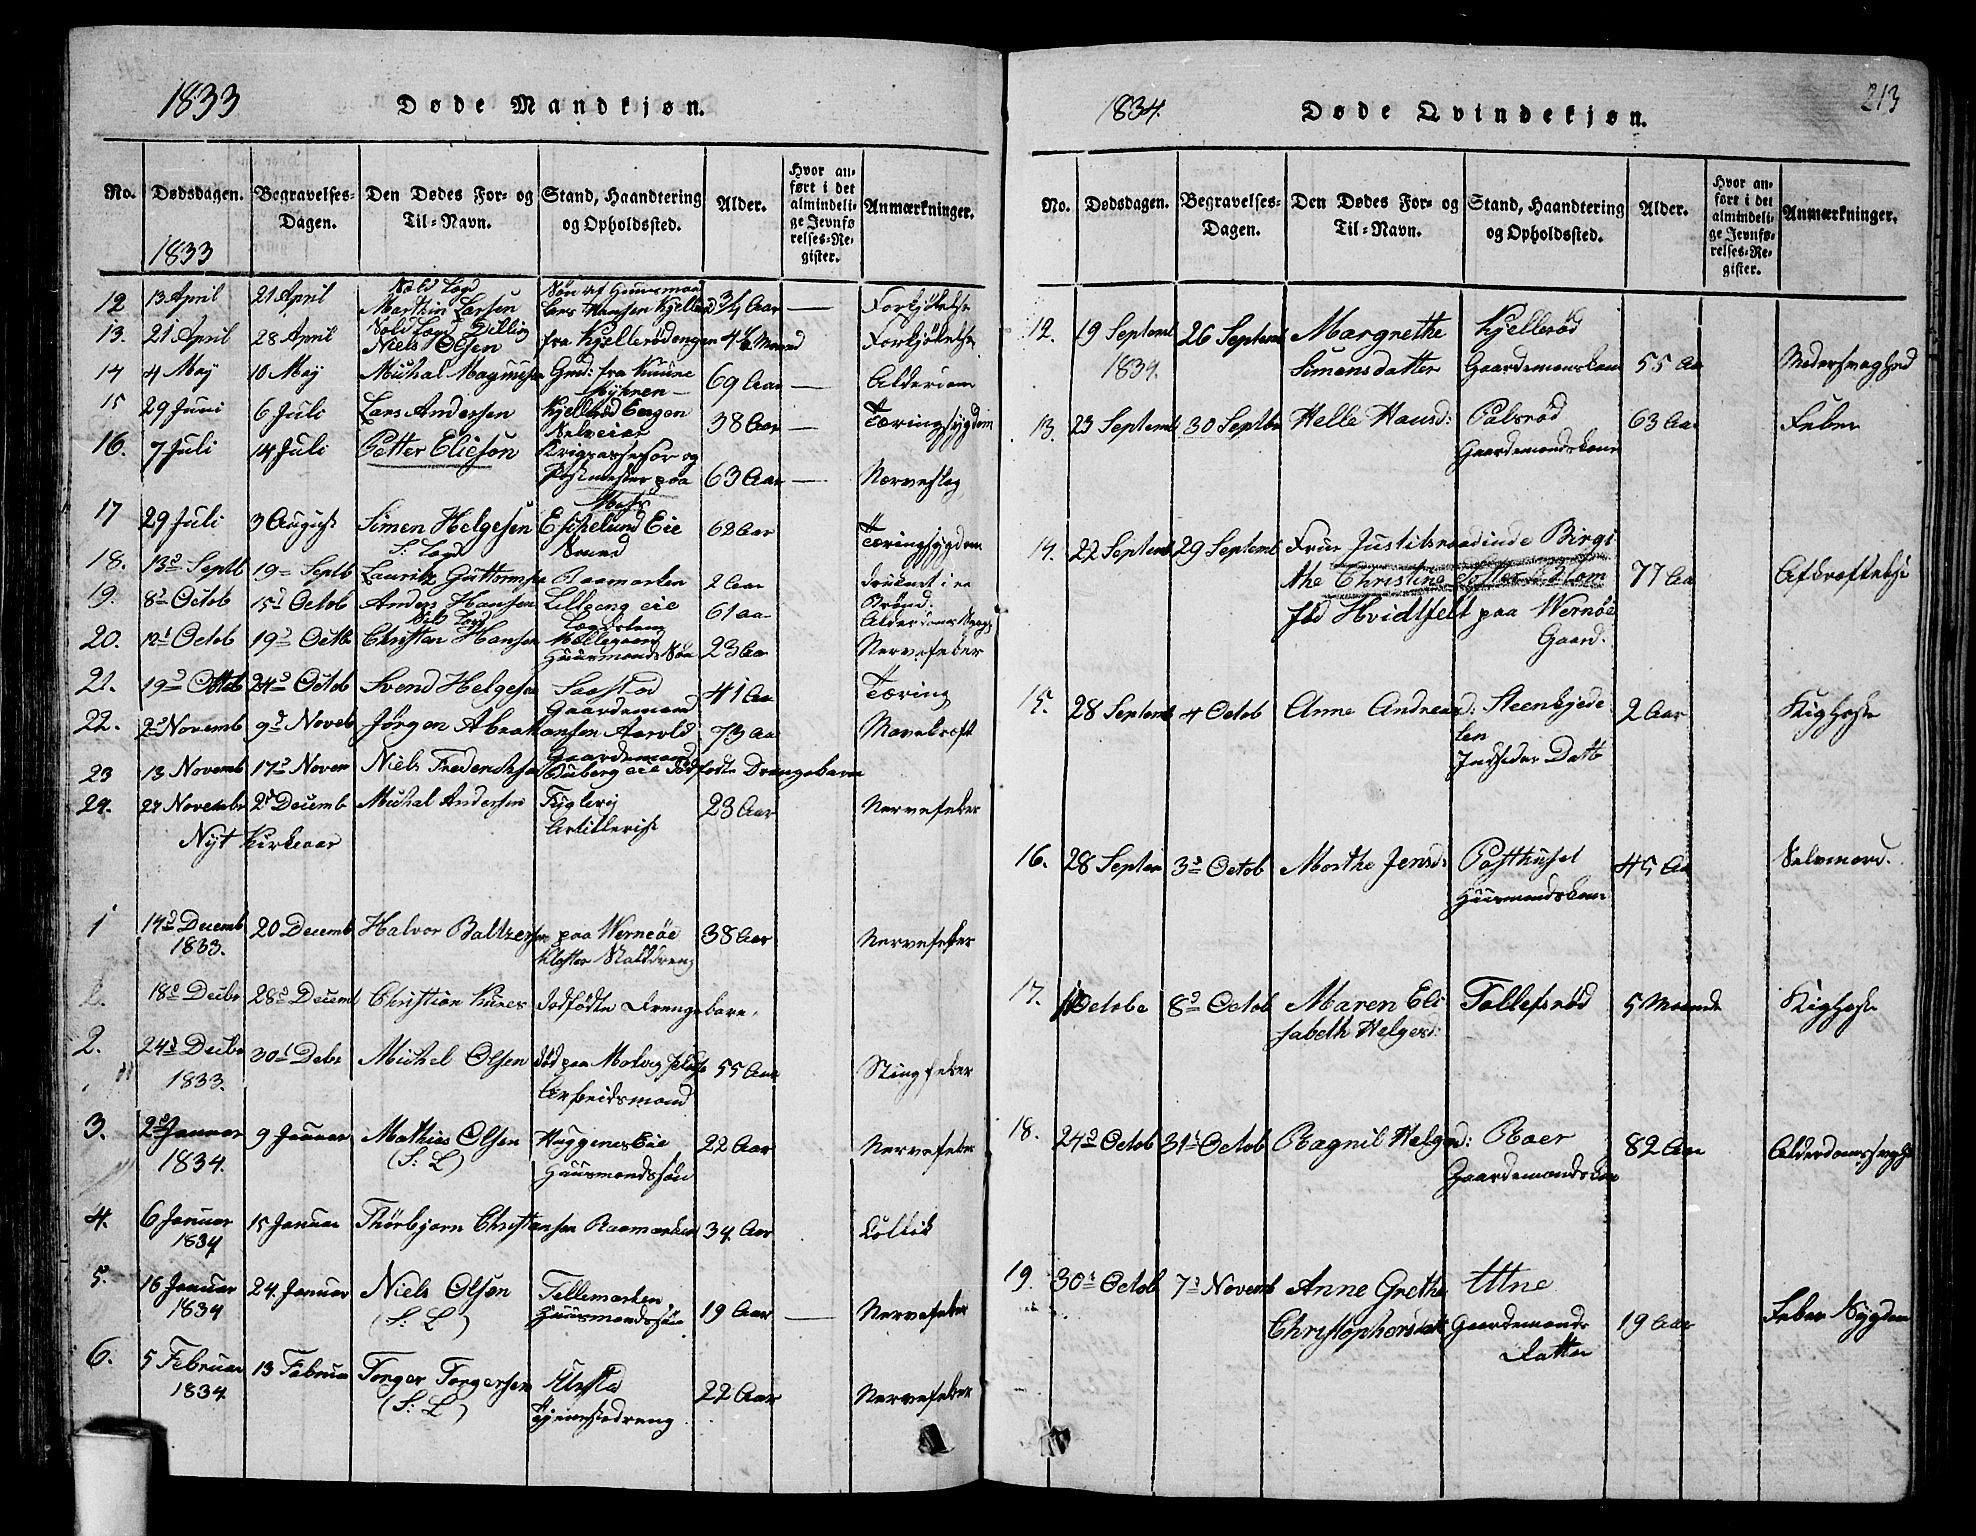 1833 Døde Mandkjøn.
No. Dødsdagen. Begravelses-Dagen. Den Dødes For- og Til-Navn. Stand, Haandtering og Opholdssted. Alder. Hvor anført i det almindelige Jevnførelses-Register. Anmærkninger.
1833
12 13 April 21 April Marthin Larsen Søn af Huusmand Lars Hansen 3/4 Aar —
13. 21 April 28 April Niels Olsen fra Kjellerødengen
14 4 May 10 May Michal Magnusen 69 Aar — Alderdom
15 29 Juni 6 Juli Lars Andersen Kjellerød Engen Selveier 38 Aar — Tæringsygdom
16. 7 Juli 14 Juli Petter Elieson Krigsassesor og Postmester paa Moss 63 Aar — Nerveslag
17 29 Juli 3 August Simen Helgesen Eskelund Eie 62 Aar Tæringsygdom
18. 13d Septb 19 Septb Lauritz Guttormsen Raamarken 2 Aar druknet i en Brønd.
19. 8d Octob 15d Octob Anders Hansen Lilleng eie 61 aa
20. 12t Octob 19d Octb Christian Hansen Huusmands Søn 23 Aar Nervefeber
21. 19d Octob 24d Octob Svend Helgesen Saastad Gaardemand 41 Aa Tæring
22. 2d Novemb 9d Noveb Jørgen Abrahamsen Aarvold Gaardemand 73 Aa
23 13 Novemb 17d Novem Niels Frederichsen eie Dødfødte Drengebarn
24. 27 Novembr 2d Decemb Michal Andersen Fuglevig Artillerist 23 Aar Nervefeber
Nyt Kirkeaar
1 14d Decemb 1833. 20 Decemb Halvor Baltzersen paa Wernøe Kloster Stalddreng 38 Aar Nervefeber
18d Decbr 28d Decemb Christian dødfødte Drengebarn.
2. 24d Decbr 1833. 30t Debr Michel Olsen Arbeidsmand 55 Aar Stingfeber
3. 2d Januar 1834. 9 Januar Mathies Olsen (S: L) Huggenes Eie Huusmandssøn 22 Aar Nervefeber
4. 6 Januar 1834 15 Januar Thorbjørn Christansen Raamarken 34 Aar Collik
5. 16 Januar 1834 24. Januar Niels Olsen (S: L) Tellemarken Huusmandssøn 19 Aar — Nervefeber
6. 5 Februar 1834 13 Februar Torger Torgersen (S: L) Tjenestedreng 22 Aar Nervefeber
1834. Døde Qvindekjøn. 213
No. Dødsdagen. Begravelses-Dagen. Den Dødes For- og Til-Navn. Stand, Haandtering og Opholdssted. Alder. Hvor anført i det almindelige Jevnførelses-Register. Anmærkninger.
12. 19 Septemb 1834. 26 Septemb Margrethe Simensdatter Kjellerød Gaardemandskone 55 Aa
13. 23 Septemb 30 Septbr Helle Hansd: Palsrød Gaardemandskone 63 Aa Feber
14. 22 Septemb 29 Septemb Frue Justitsraadinde Birgithe Christine Blom fød Hvidtfelt paa Wernøe Gaard. 77 Aa Afkræftelse
15. 28 Septemb 4 Octob Anne Andreasd: Steenkjedelen Indsidder Dattr 2 Aar Kighoste
16. 28 Septem 3d Octob Marthe Jensd: Posthuset Huusmandskone 45 Aa Selvmord.
17. Octobe 8d Octob Maren Elisabeth Helgesd: Tollefsrød 5 Maaneder Kighoste
18. 24d Octob 31t Octob Ragnil Helgesd: Roer Gaardemandskone 82 Aar Alderdomssvagh
19. 30t Octob 7d Novemb Anne Grethe Christophersdatt Utne Gaardemands Datter 19 Aar Feber Sygdom